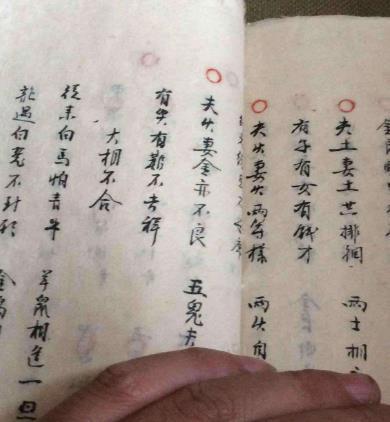 夫土妻土共排徊 两土相
有子有女有錢才
夫火妻火兩等樣 兩火自
夫火妻金亦不良 五鬼夫
有有難不吉祥
大相不合
從来白馬怕青牛 羊鼠相逢一旦
龍遇白兔不 金鸡